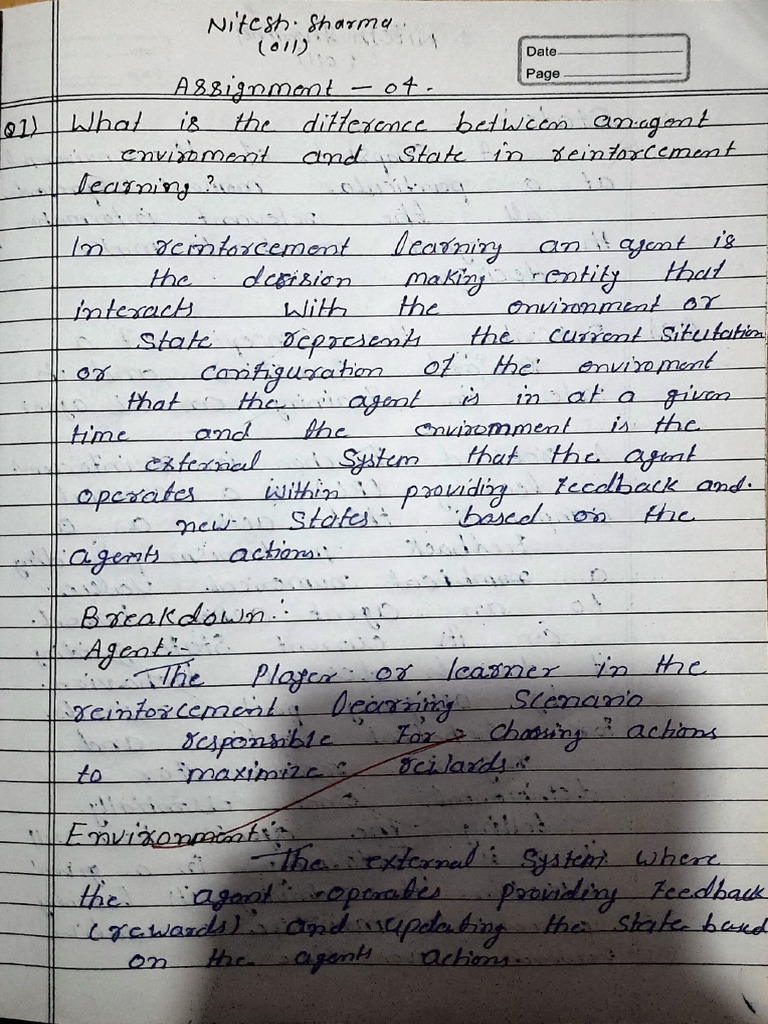 Nitesh. Sharma
(011)
Date
Page
Assignment - 04.
Q1) What is the difference between an agent
enviroment and State in reinforcement
learning?
In reinforcement learning an agent is
the desision making entity that
interacts with the environment or
State represents the current Situtation
or configuration of the enviroment
that the agent is in at a given
time and the environmment is the
external System that the agent
operates within providing feedback and.
new States based on the
agents actions.
Breakdown:
Agent:-
The Player or learner in the
reinforcement learning Scenario
responsible For choosing actions
to maximize rewards.
Environment:
The external System where
the agent operates providing feedback
(rewards) and updating the state based
on the agents actions.